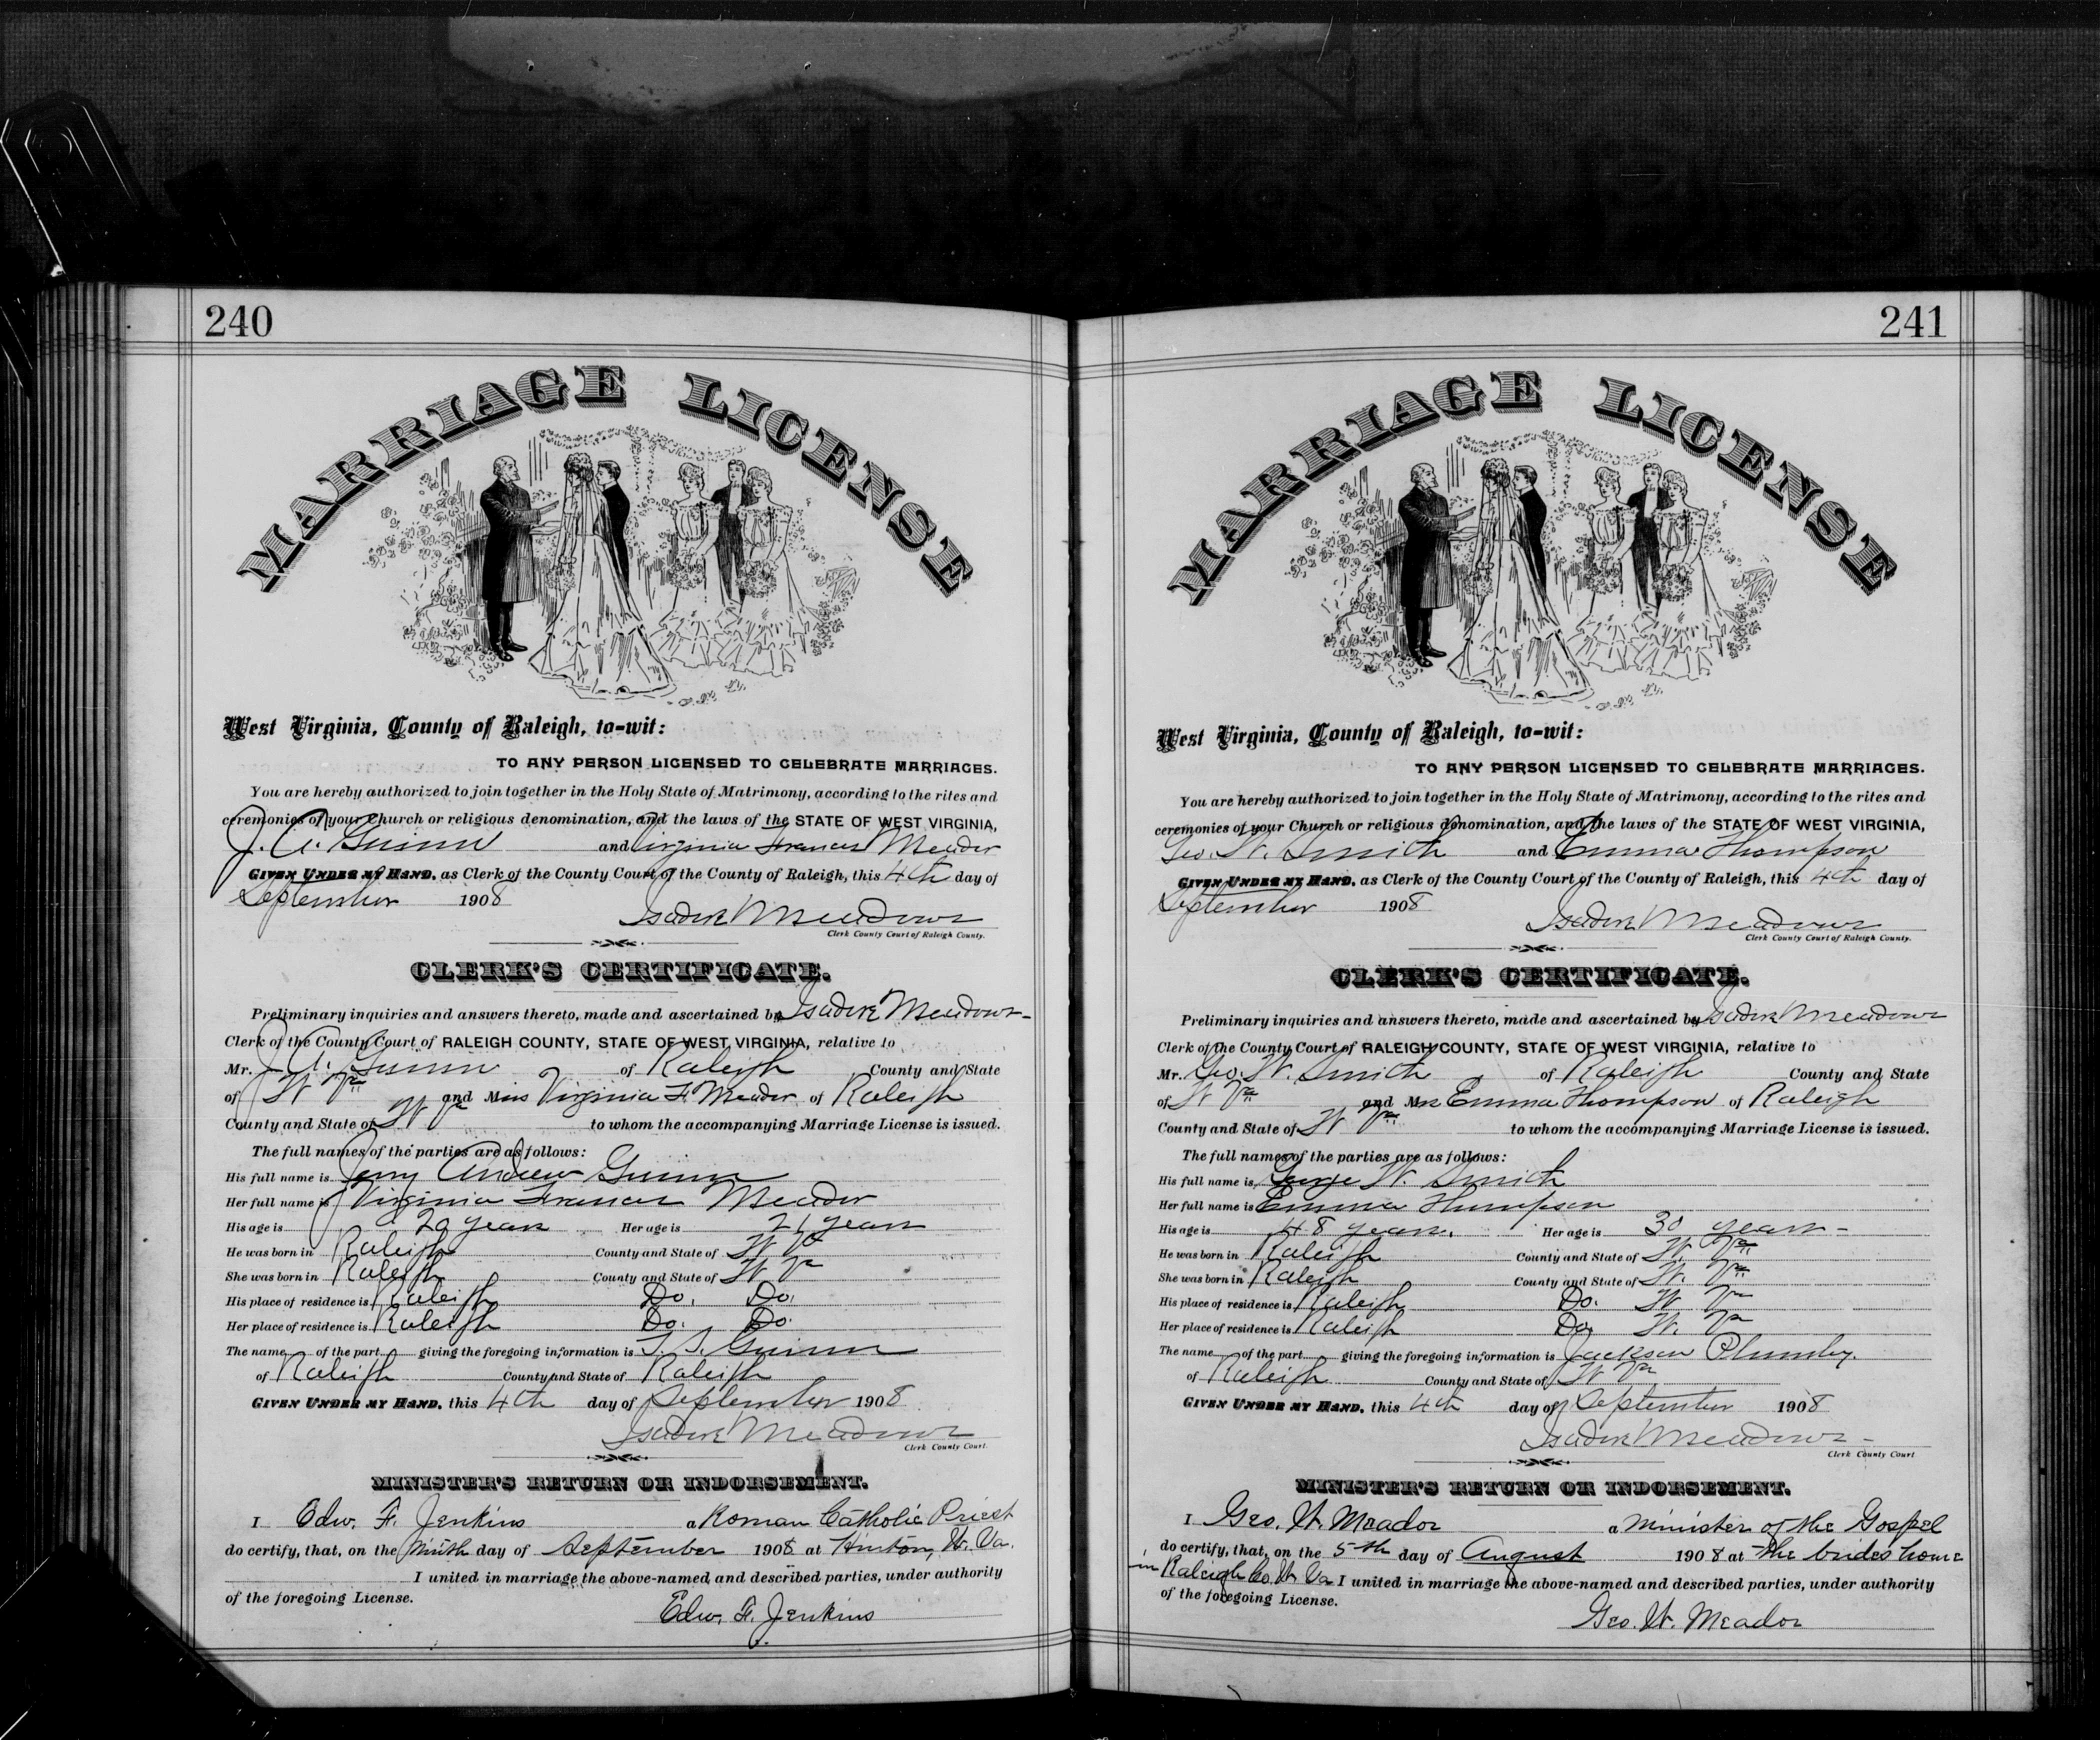 240
MARRIAGE LICENSE
West Virginia, County of Raleigh, to-wit:
TO ANY PERSON LICENSED TO CELEBRATE MARRIAGES.
You are hereby authorized to join together in the Holy State of Matrimony, according to the rites and
ceremonies of your Church or religious denomination, and the laws of the STATE OF WEST VIRGINIA,
J. A. Guinn and Virginia Frances Meador
GIVEN UNDER MY HAND, as Clerk of the County Court of the County of Raleigh, this 4th day of
September 1908
Isadore Meadows
Clerk County Court of Raleigh County.
CLERK'S CERTIFICATE.
Preliminary inquiries and answers thereto, made and ascertained by Isadore Meadows
Clerk of the County Court of RALEIGH COUNTY, STATE OF WEST VIRGINIA, relative to
Mr. J. A. Guinn of Raleigh County and State
of W Va and Miss Virginia F. Meador of Raleigh
County and State of W Va to whom the accompanying Marriage License is issued.
The full names of the parties are as follows:
His full name is Jerry Andrew Guinn
Her full name is Virginia Frances Meador
His age is 29 years Her age is 21 years
He was born in Raleigh County and State of W Va
She was born in Raleigh County and State of W Va
His place of residence is Raleigh Do. Do.
Her place of residence is Raleigh Do. Do.
The name of the part giving the foregoing information is Guinn
of Raleigh County and State of Raleigh
GIVEN UNDER MY HAND, this 4th day of September 1908
Isadore Meadows
Clerk County Court.
MINISTER'S RETURN OR INDORSEMENT.
I Edw. F. Jenkins a Roman Catholic Priest
do certify, that, on the Ninth day of September 1908 at Hinton, W. Va.
I united in marriage the above-named and described parties, under authority
of the foregoing License.
Edw. F. Jenkins
241
MARRIAGE LICENSE
West Virginia, County of Raleigh, to-wit:
TO ANY PERSON LICENSED TO CELEBRATE MARRIAGES.
You are hereby authorized to join together in the Holy State of Matrimony, according to the rites and
ceremonies of your Church or religious denomination, and the laws of the STATE OF WEST VIRGINIA,
Geo. W. Smith and Emma Thompson
GIVEN UNDER MY HAND, as Clerk of the County Court of the County of Raleigh, this 4th day of
September 1908
Isadore Meadows
Clerk County Court of Raleigh County.
CLERK'S CERTIFICATE.
Preliminary inquiries and answers thereto, made and ascertained by Isadore Meadows
Clerk of the County Court of RALEIGH COUNTY, STATE OF WEST VIRGINIA, relative to
Mr. Geo. W. Smith of Raleigh County and State
of W Va and Mrs Emma Thompson of Raleigh
County and State of W Va to whom the accompanying Marriage License is issued.
The full names of the parties are as follows:
His full name is George W. Smith
Her full name is Emma Thompson
His age is 48 years. Her age is 30 years
He was born in Raleigh County and State of W. Va
She was born in Raleigh County and State of W. Va
His place of residence is Raleigh Do. W Va
Her place of residence is Raleigh Do W. Va
The name of the part giving the foregoing information is Jackson Plumley.
of Raleigh County and State of W Va
GIVEN UNDER MY HAND, this 4th day of September 1908
Isadore Meadows
Clerk County Court
MINISTER'S RETURN OR INDORSEMENT.
I Geo. W. Meador a minister of the Gospel
do certify, that, on the 5th day of August 1908 at the brides home
in Raleigh Co. W Va I united in marriage the above-named and described parties, under authority
of the foregoing License.
Geo. W. Meador